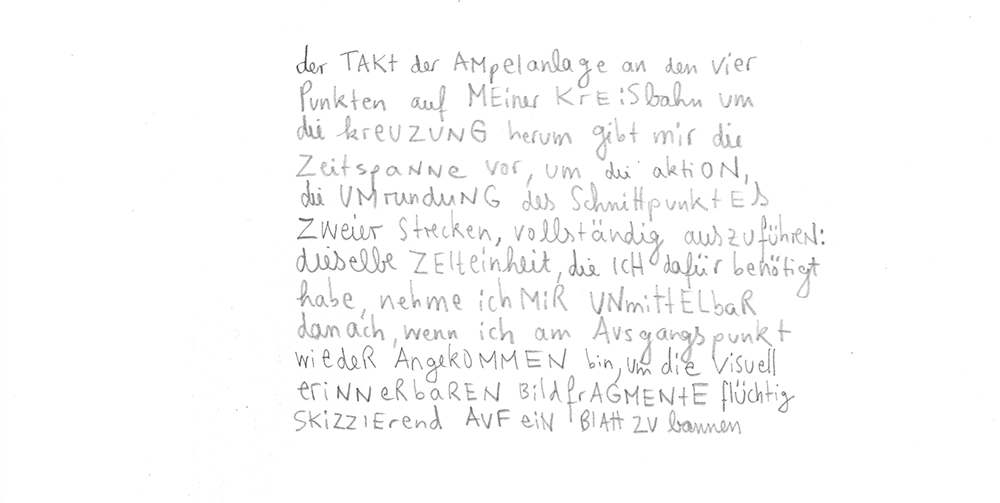 der TAKt der AMpelanlage an den vier
Punkten auf MEiner KrEiSbahn um
die kreUZUNG herum gibt mir die
ZeitspaNNe vor, um die aktiON,
die UMrunduNG des SchnittpunktES
ZWeier Strecken, vollständig auszuführeN:
dieselbe ZEIteinheit, die ICH dafür benötigt
habe, nehme ich MiR UNmittELbaR
danach, wenn ich am Ausgangspunkt
wiedeR AngekOMMEN bin, um die visuell
eriNNeRbaREN BildfrAGMENtE flüchtig
SKiZZIErend AUF eiN BlAtt ZU bannen